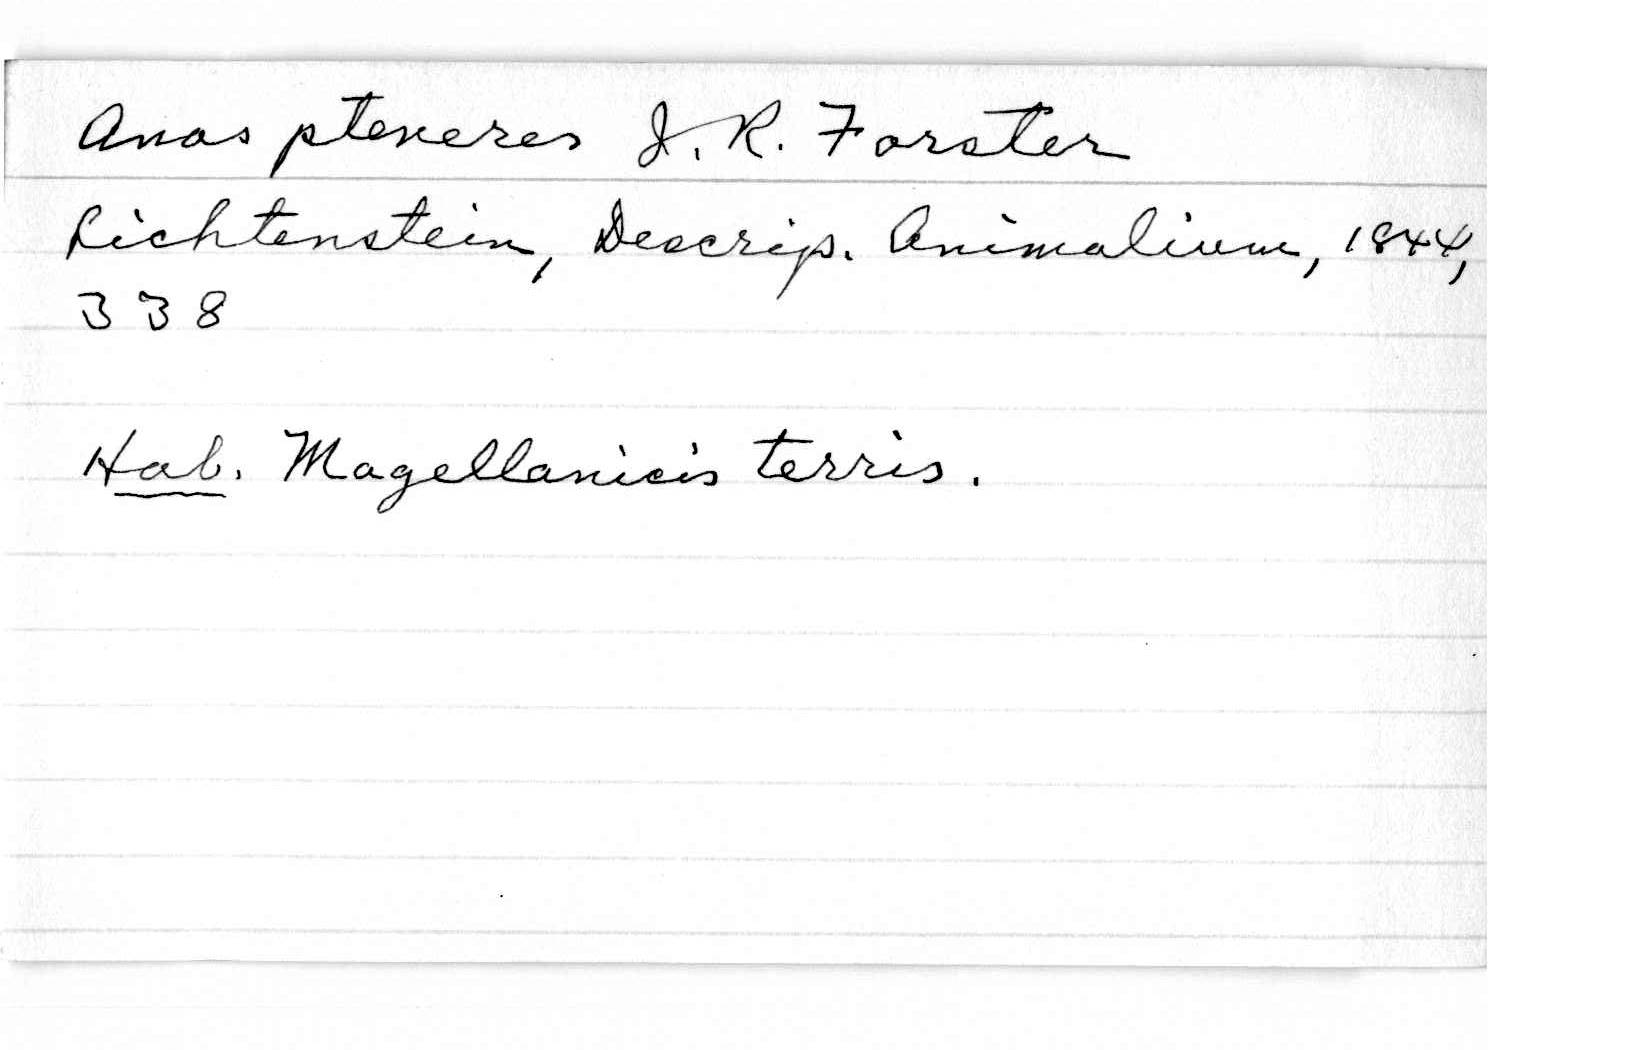 Anas pteneres J. R. Forster
Lichtenstein, Descrip. Animalium, 1844,
338
Hab. Magellanicis terris.